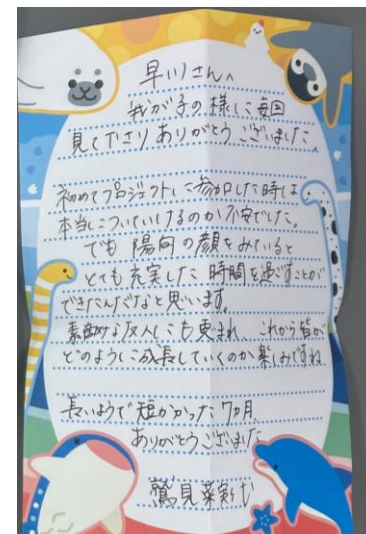 早川さんへ
我が子の様に毎回
見て下さりありがとうございました。
初めてプロジェクトに参加した時は
本当についていけるのか不安でした。
でも 陽向の顔をみていると
とても充実した 時間を過ごすことが
できたんだなと思います。
素敵な友人にも恵まれ、これから皆が
どのように成長していくのか楽しみですね
長いようで短かかった7カ月
ありがとうございました
鷲見菜